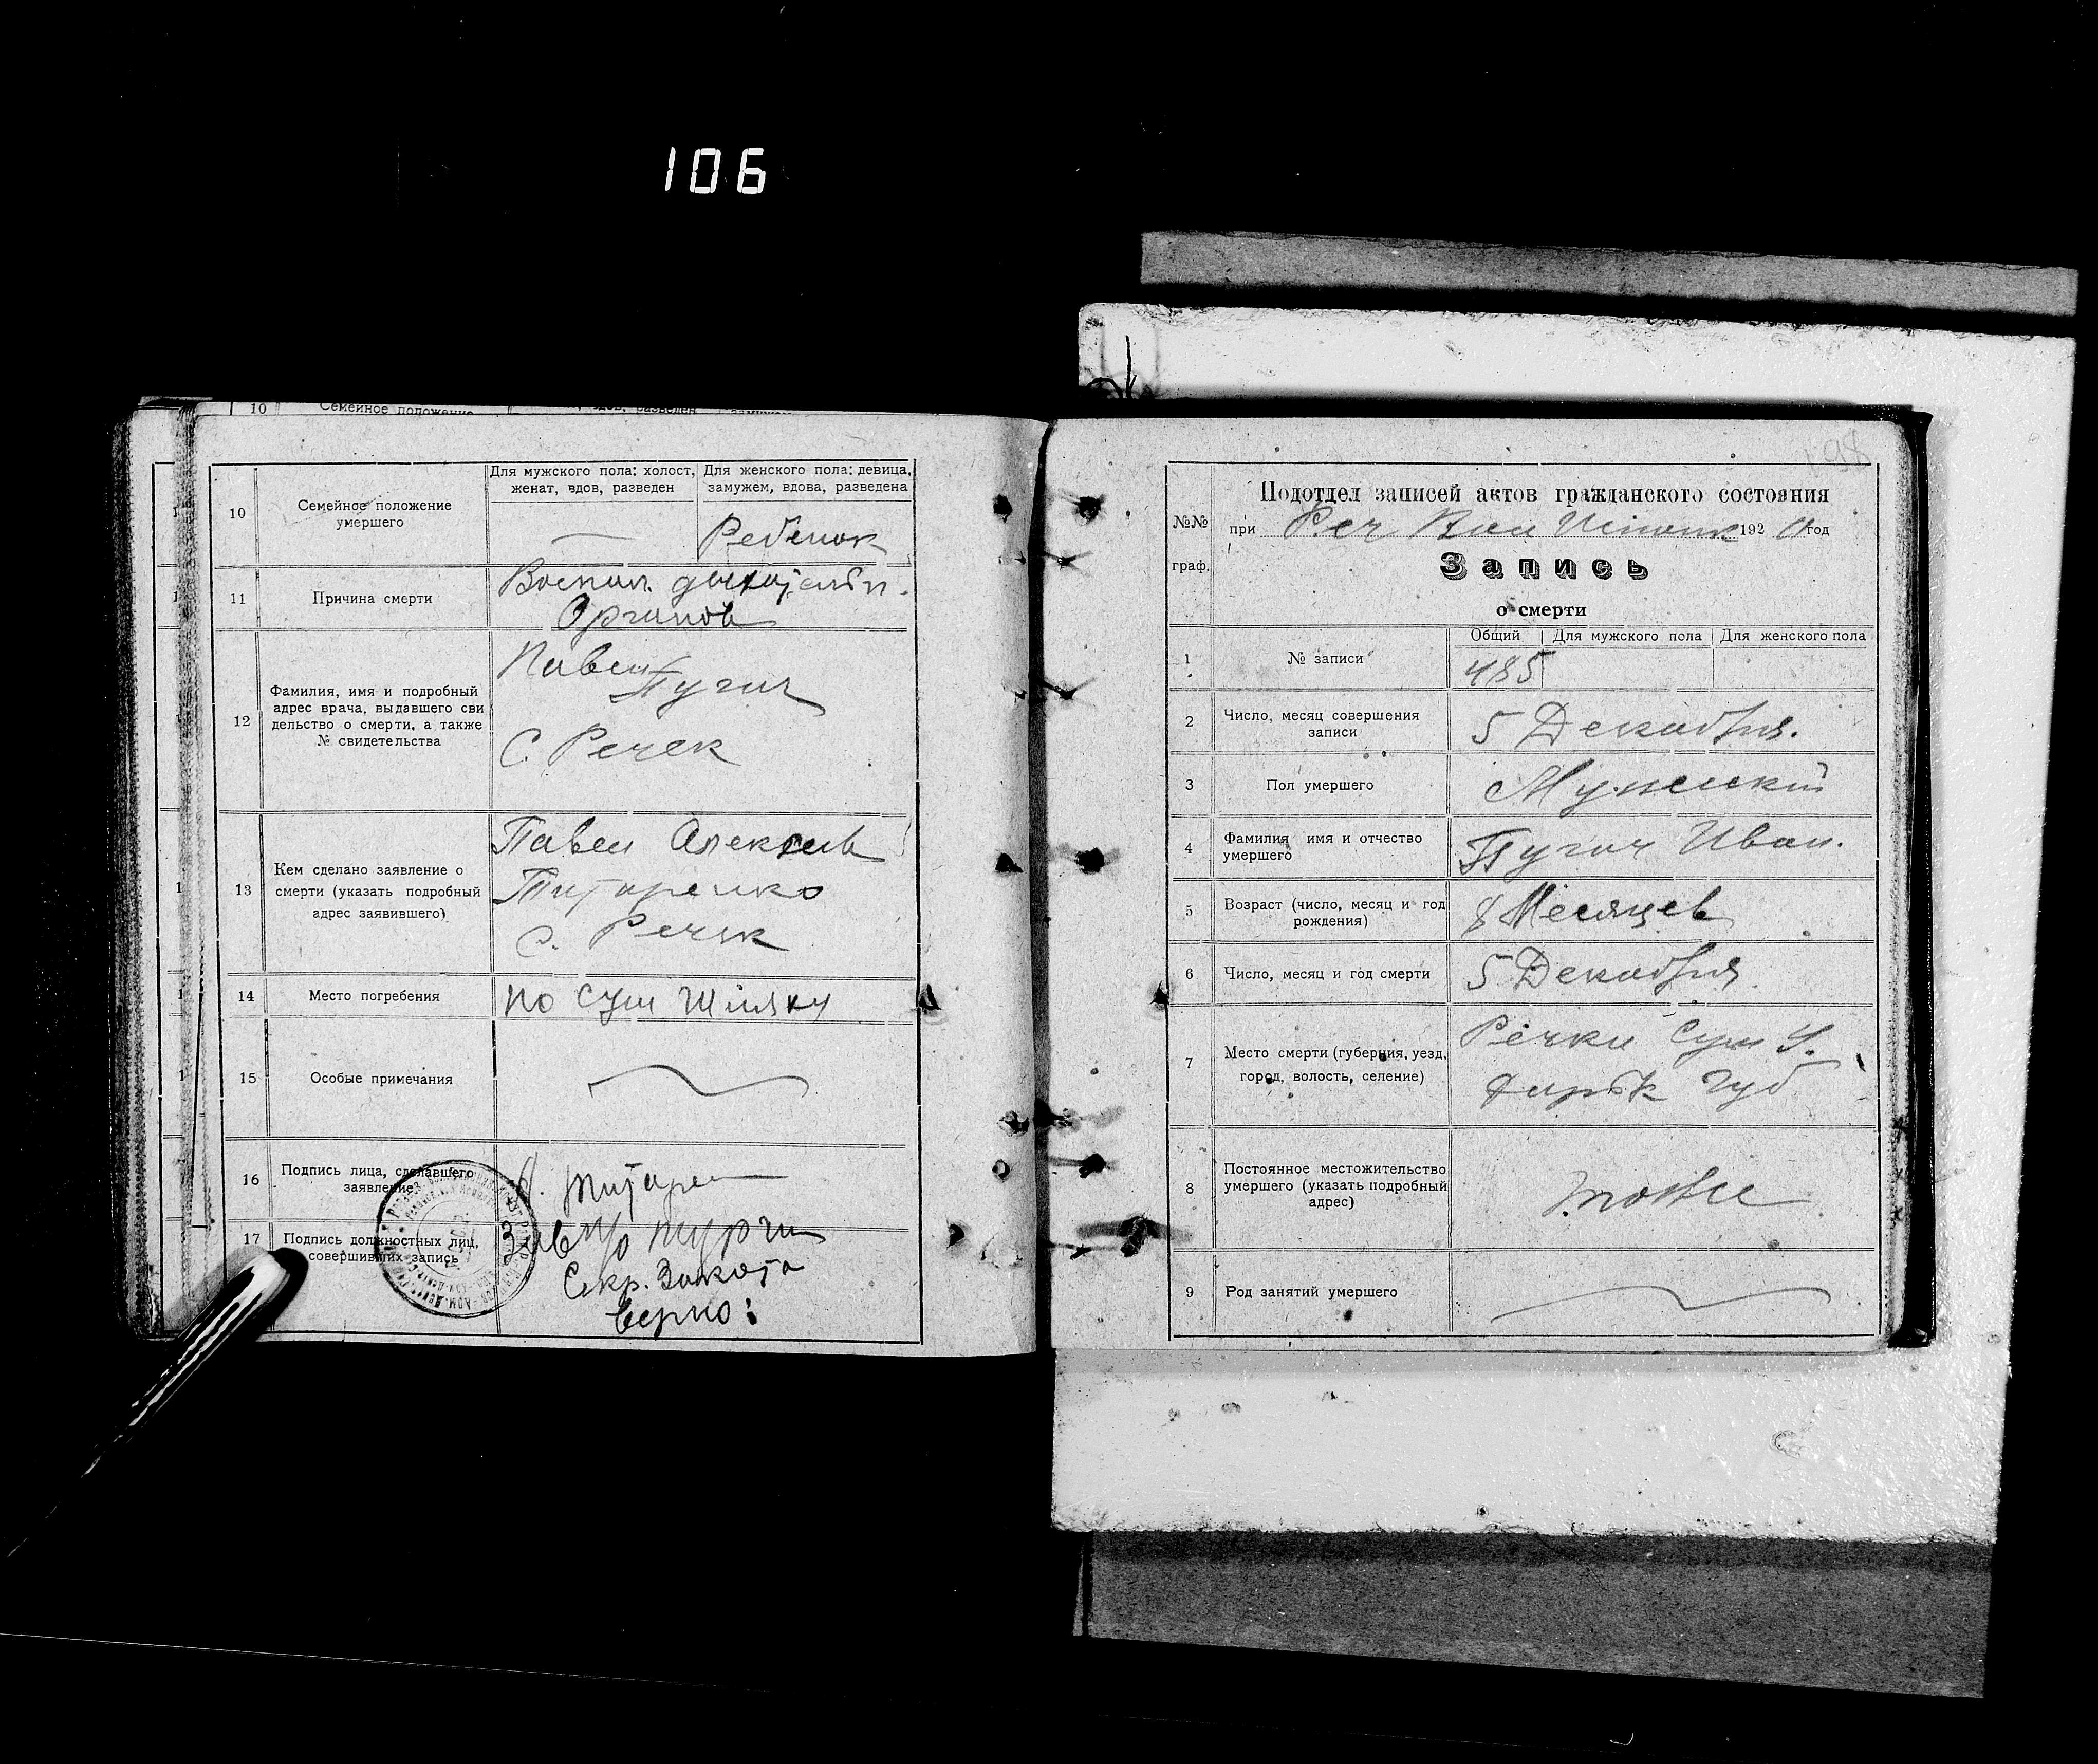 106
10 Семейное положение
10 Семейное положение умершего
Для мужского пола: холост, женат, вдов, разведен
Для женского пола: девица, замужем, вдова, разведена
Ребенок
11 Причина смерти
Воспал. дыхательн.
Органов
12 Фамилия, имя и подробный
адрес врача, выдавшего сви
дельство о смерти, а также
№ свидетельства
Павел
Пугач
С. Речек
13 Кем сделано заявление о
смерти (указать подробный
адрес заявившего)
Павел Алексеев
Титаренко
с. Речек
14 Место погребения
по Сум Шляху
15 Особые примечания
16 Подпись лица, сделавшего
заявление
17 Подпись должностных лиц,
совершивших запись
Секр.
Верно:
198
№№
граф.
Подотдел записей актов гражданского состояния
при Реч Вол 1920 год
Запись
о смерти
Общий Для мужского пола Для женского пола
1 № записи
485
2 Число, месяц совершения
записи
5 Декабря.
3 Пол умершего
Мужский
4 Фамилия имя и отчество
умершего
Пугач Иван.
5 Возраст (число, месяц и год
рождения)
8 Месяцев
6 Число, месяц и год смерти
5 Декабря
7 Место смерти (губерния, уезд,
город, волость, селение)
Речки Сум У.
Харьк губ
8 Постоянное местожительство
умершего (указать подробный
адрес)
тоже
9 Род занятий умершего